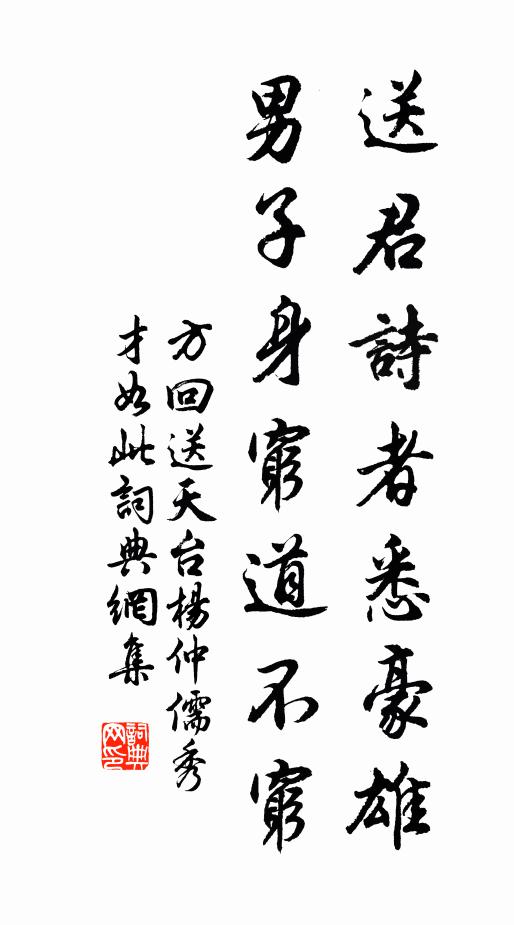 送君詩者悉豪雄
男子身窮道不窮
方回送天台楊仲儒秀
才如此詞典網集
詞典網印